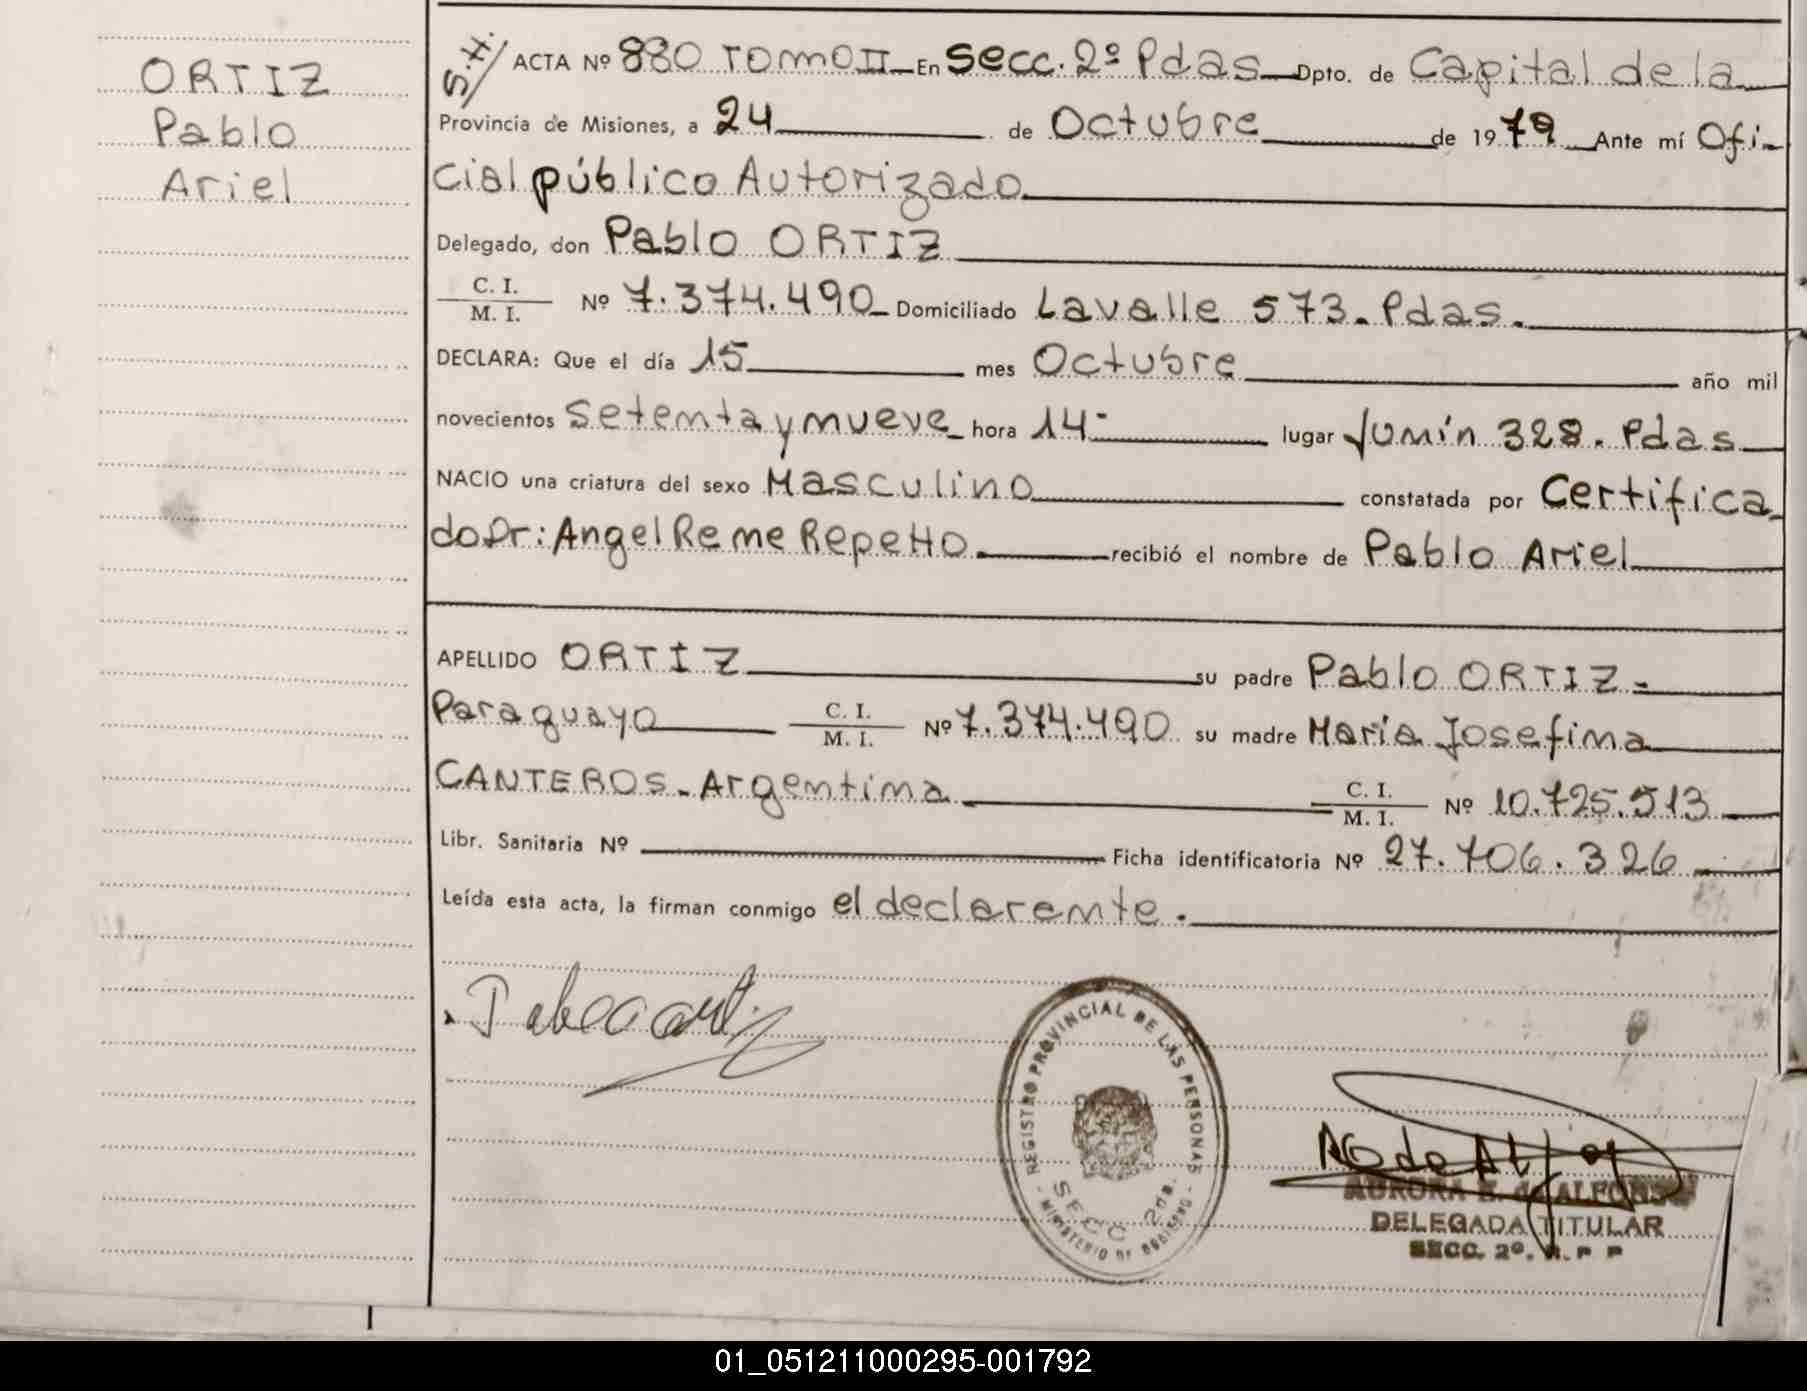 ORTIZ
Pablo
Ariel
S.H./ ACTA Nº 880 TOMO II En Secc. 2º Pdas Dpto. de Capital de la
Provincia de Misiones, a 24 de Octubre de 1979 Ante mí Ofi-
cial público Autorizado
Delegado, don Pablo ORTIZ
C. I.
M. I. Nº 7.374.490 Domiciliado Lavalle 573. Pdas.
DECLARA: Que el día 15 mes Octubre año mil
novecientos setenta y nueve hora 14- lugar Junín 328. Pdas
NACIO una criatura del sexo Masculino constatada por Certifica
do Dr: Angel Rene Repetto recibió el nombre de Pablo Ariel
APELLIDO ORTIZ su padre Pablo ORTIZ-
Paraguayo C. I.
M. I. Nº 7.374.490 su madre María Josefina
CANTEROS - Argentina C. I.
M. I. Nº 10.725.513
Libr. Sanitaria Nº Ficha identificatoria Nº 27.706.326
Leída esta acta, la firman conmigo el declarente.
REGISTRO PROVINCIAL DE LAS PERSONAS
SECC 2da.
- MINISTERIO DE GOBIERNO -
AURORA E. de ALFONSO
DELEGADA TITULAR
SECC. 2º. R. P P
01_051211000295-001792